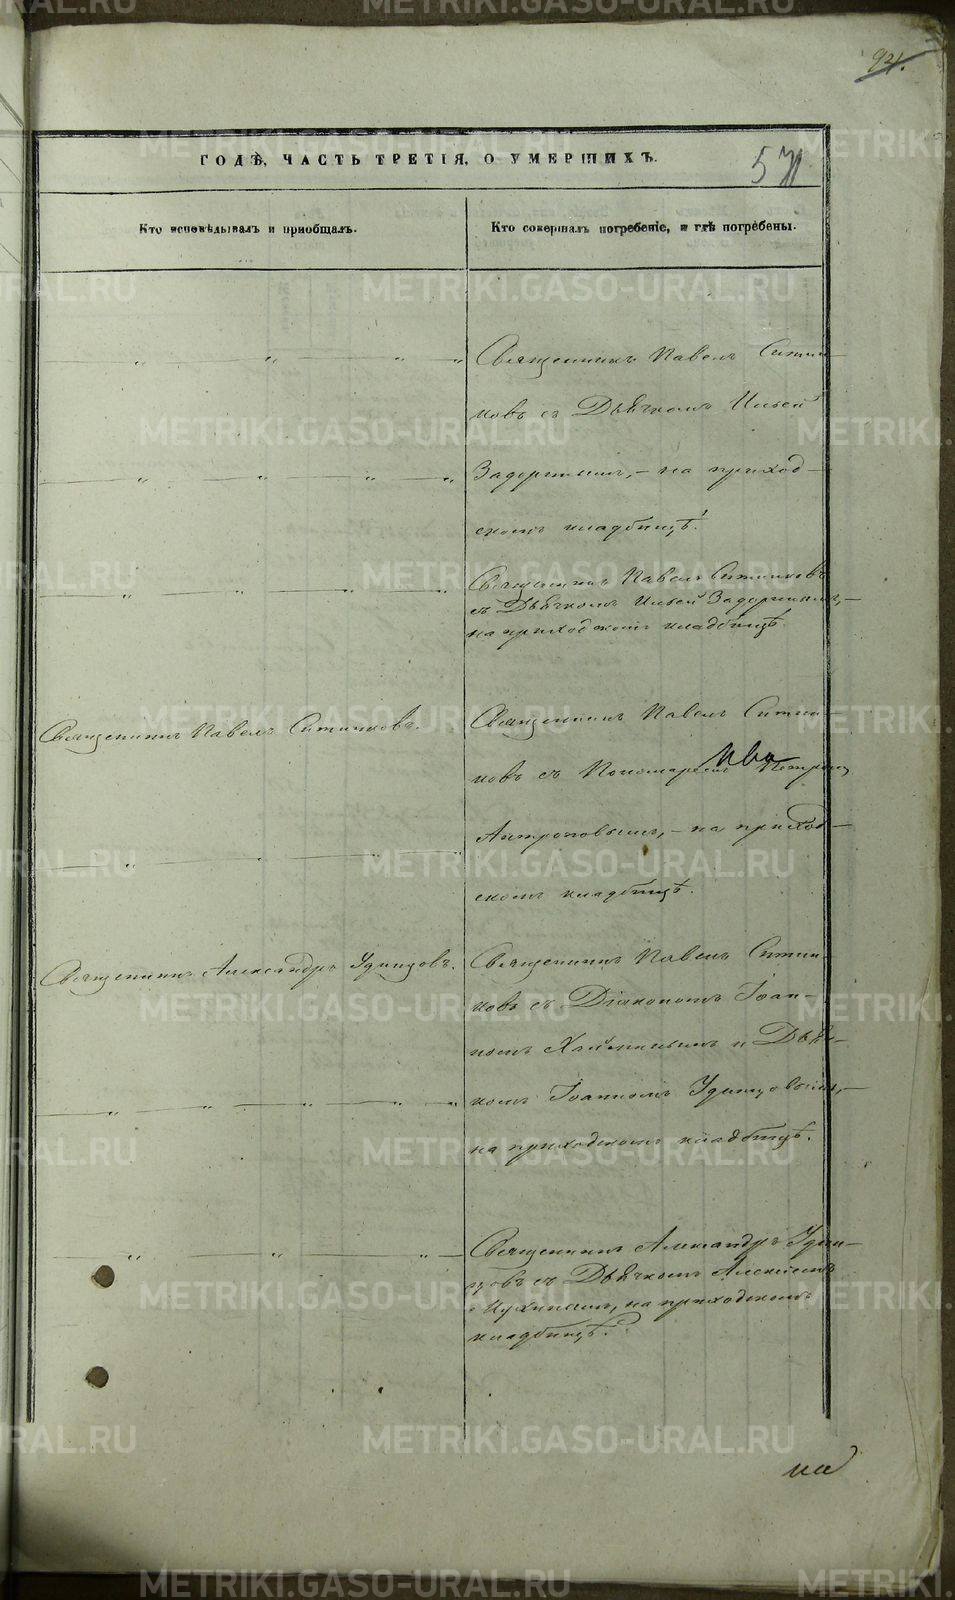 94.
ГОДѢ, ЧАСТЬ ТРЕТІЯ, О УМЕРШИХЪ.
571
Кто исповѣдывалъ и пріобщалъ.
Кто совершалъ погребеніе, и гдѣ погребены.
Священникъ Павелъ Ситни-
ковъ съ Дьячкомъ Ильей
Задоринымъ, - на приход-
скомъ кладбищѣ.
Священникъ Павелъ Ситниковъ
съ Дьячкомъ Ильей Задоринымъ, -
на приходскомъ кладбищѣ.
Священникъ Павелъ Ситниковъ.
Священникъ Павелъ Ситни-
ковъ съ Пономаремъ Петромъ
Антроповымъ, - на приход-
скомъ кладбищѣ.
Священникъ Александръ Удинцовъ.
Священникъ Павелъ Ситни-
ковъ съ Діакономъ Іоан-
номъ Хлынинымъ и Дьяч-
комъ Іоанномъ Удинцовымъ, -
на приходскомъ кладбищѣ.
Священникъ Александръ Удин-
цовъ съ Дьячкомъ Алексѣемъ
на приходскомъ
кладбищѣ.
METRIKI.GASO-URAL.RU